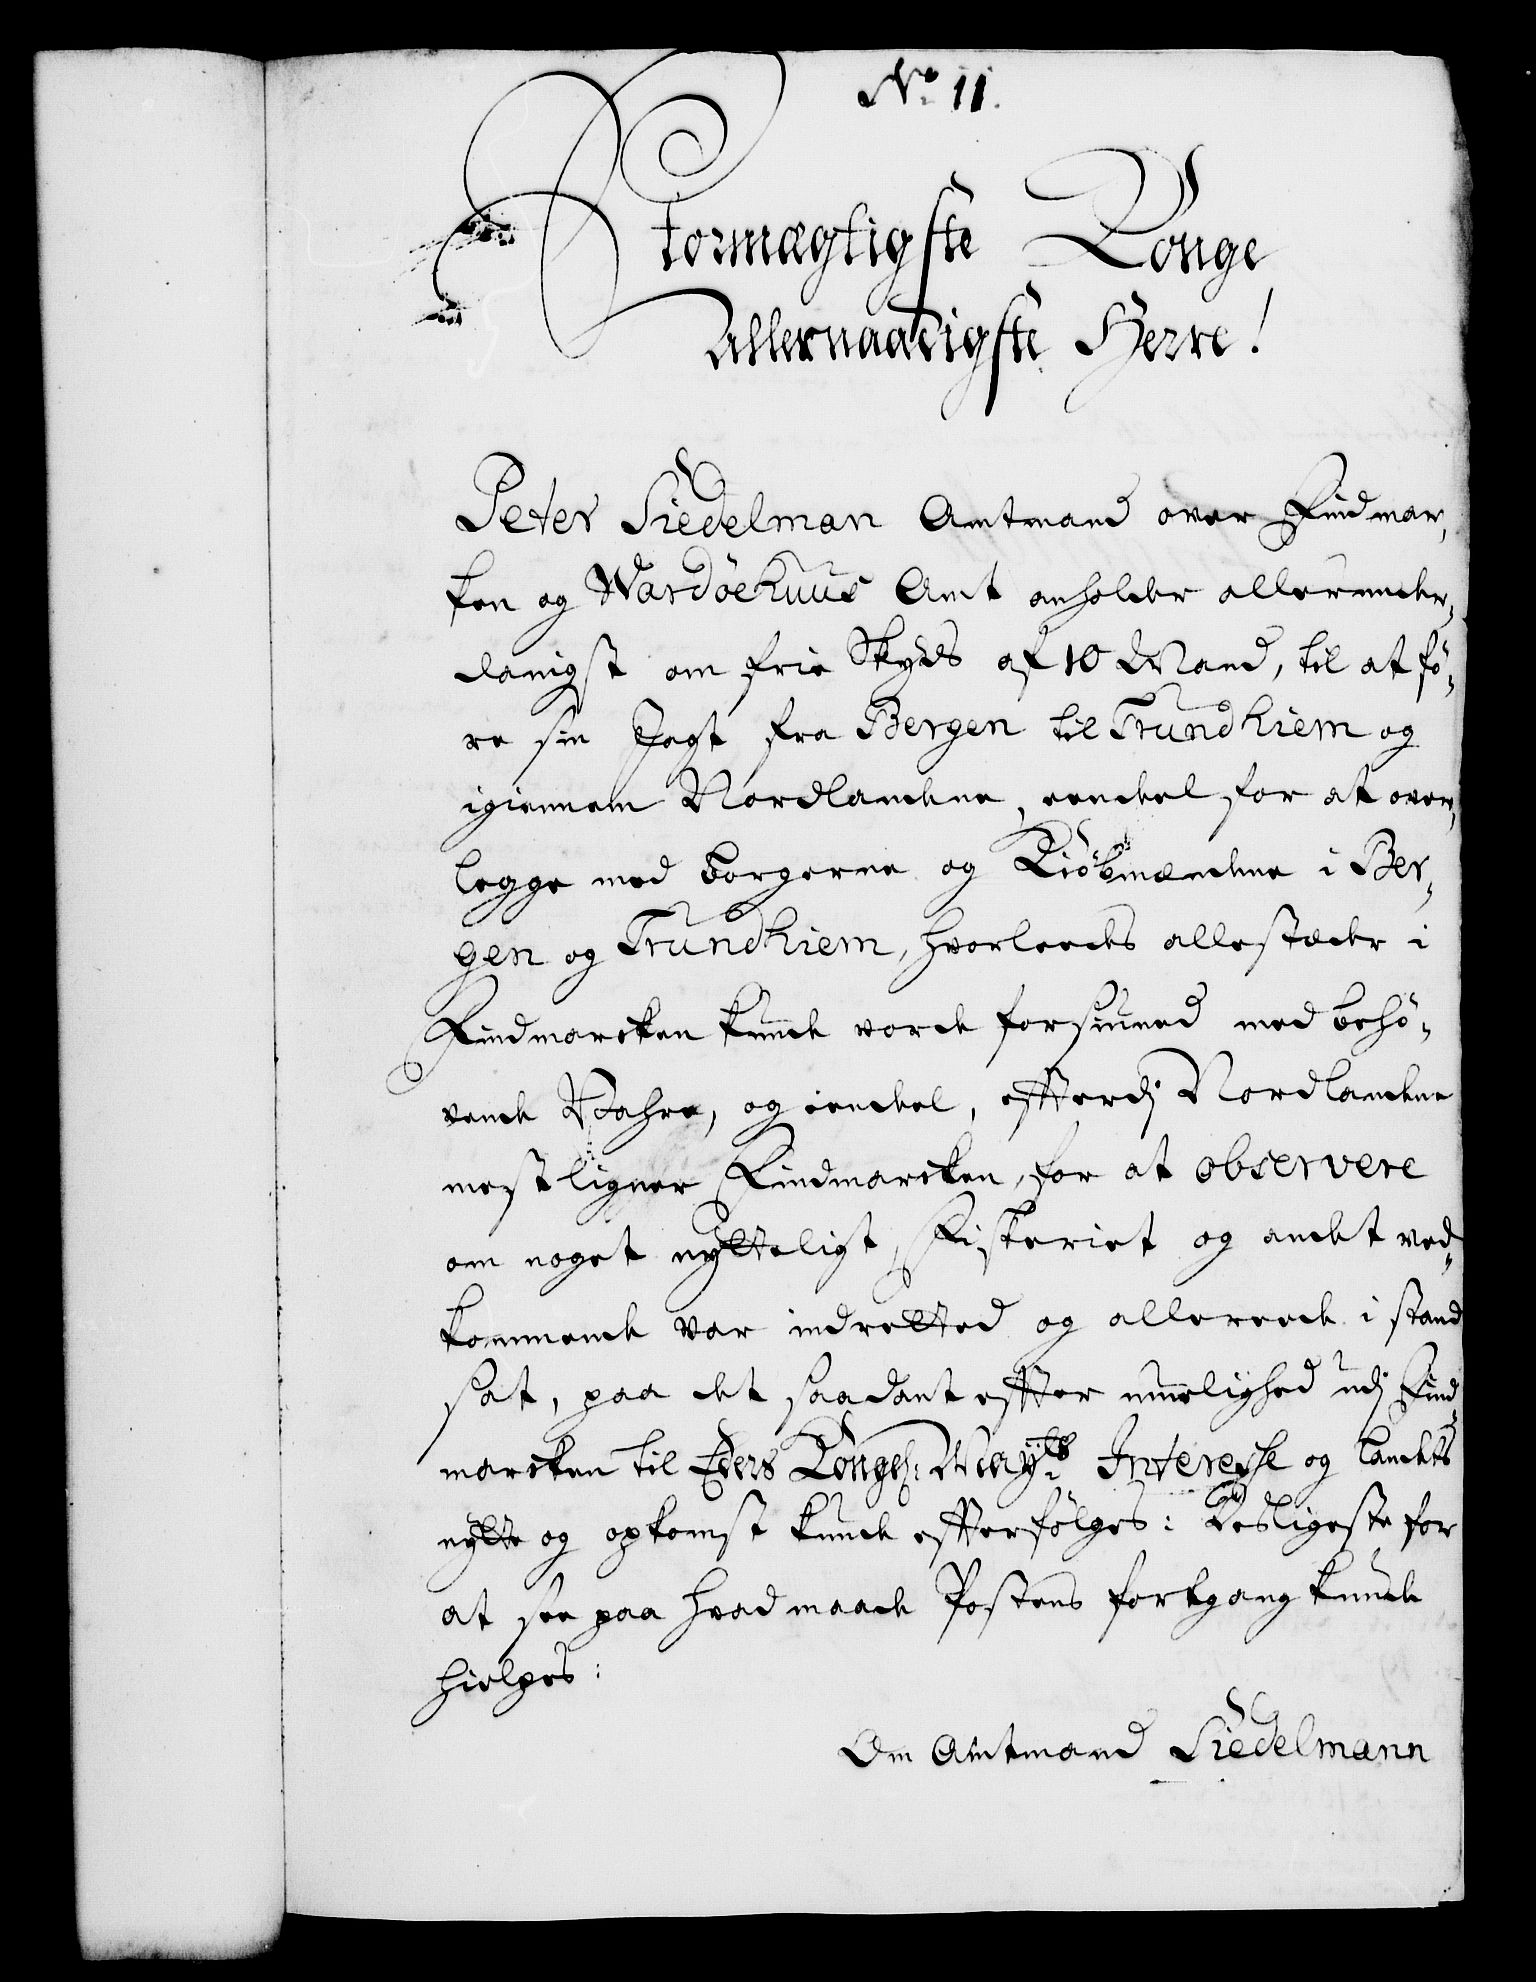 No 11.
Stormægtigste Konge
Allernaadigste Herre!
Peter Siedelman Amtmand over Findmar,
ken og Wardöehuus Amt anholder allerunder,
danigst om frie Skyds af 10 Mand, til at fö,
re sin Jagt fra Bergen til Trundhiem og
igiennem Nordlandene, eendel for at over,
legge med borgerne og Kiöbmændene i Ber,
gen og Trundhiem, hvorleedes allestæder i
Findmarcken kunde vorde forsiuned med behö,
vende Wahre, og eendel, efftterdj Nordlandene
mest ligner Findmarcken, for at observere
om noget nytteligt, Fiskeriet og andet ved,
kommende var indretted og allereede i stand
sat, paa det saadant effter muelighed udj Find,
marcken til Eders Kongl: Mayts Interesse og landets
nytte og opkomst kunde effterfölges: desligeste for
at see paa hvad maade Postens fortgang kunde
hielpes:
Om Amtmand Siedelmann